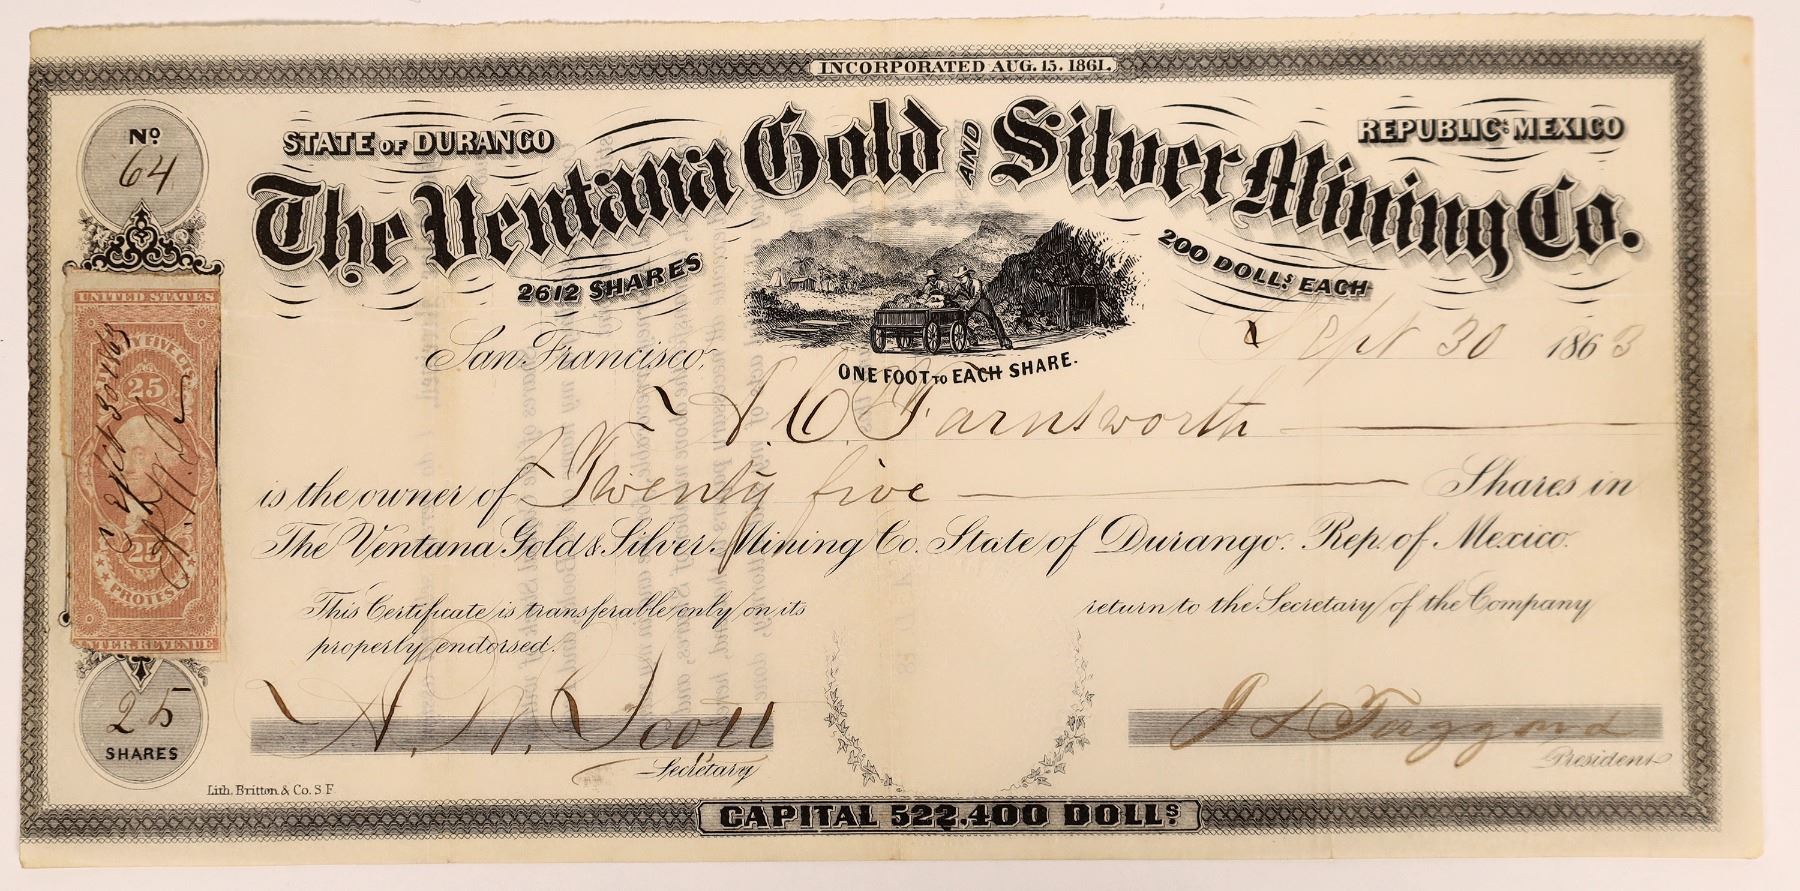 INCORPORATED AUG. 15. 1861.
No.
64
STATE OF DURANGO
REPUBLIC OF MEXICO
The Ventana Gold AND Silver Mining Co.
2612 SHARES
200 DOLLS. EACH
ONE FOOT TO EACH SHARE.
San Francisco, Sept 30 1863
Farnsworth
is the owner of Twenty five Shares in
The Ventana Gold & Silver Mining Co. State of Durango. Rep. of Mexico.
This Certificate is transferable only on its return to the Secretary of the Company
properly endorsed.
Scott
Secretary
President
UNITED STATES
25
25
PROTEST
INTER. REVENUE
25
SHARES
Lith. Britton & Co. S F
CAPITAL 522,400 DOLLS.